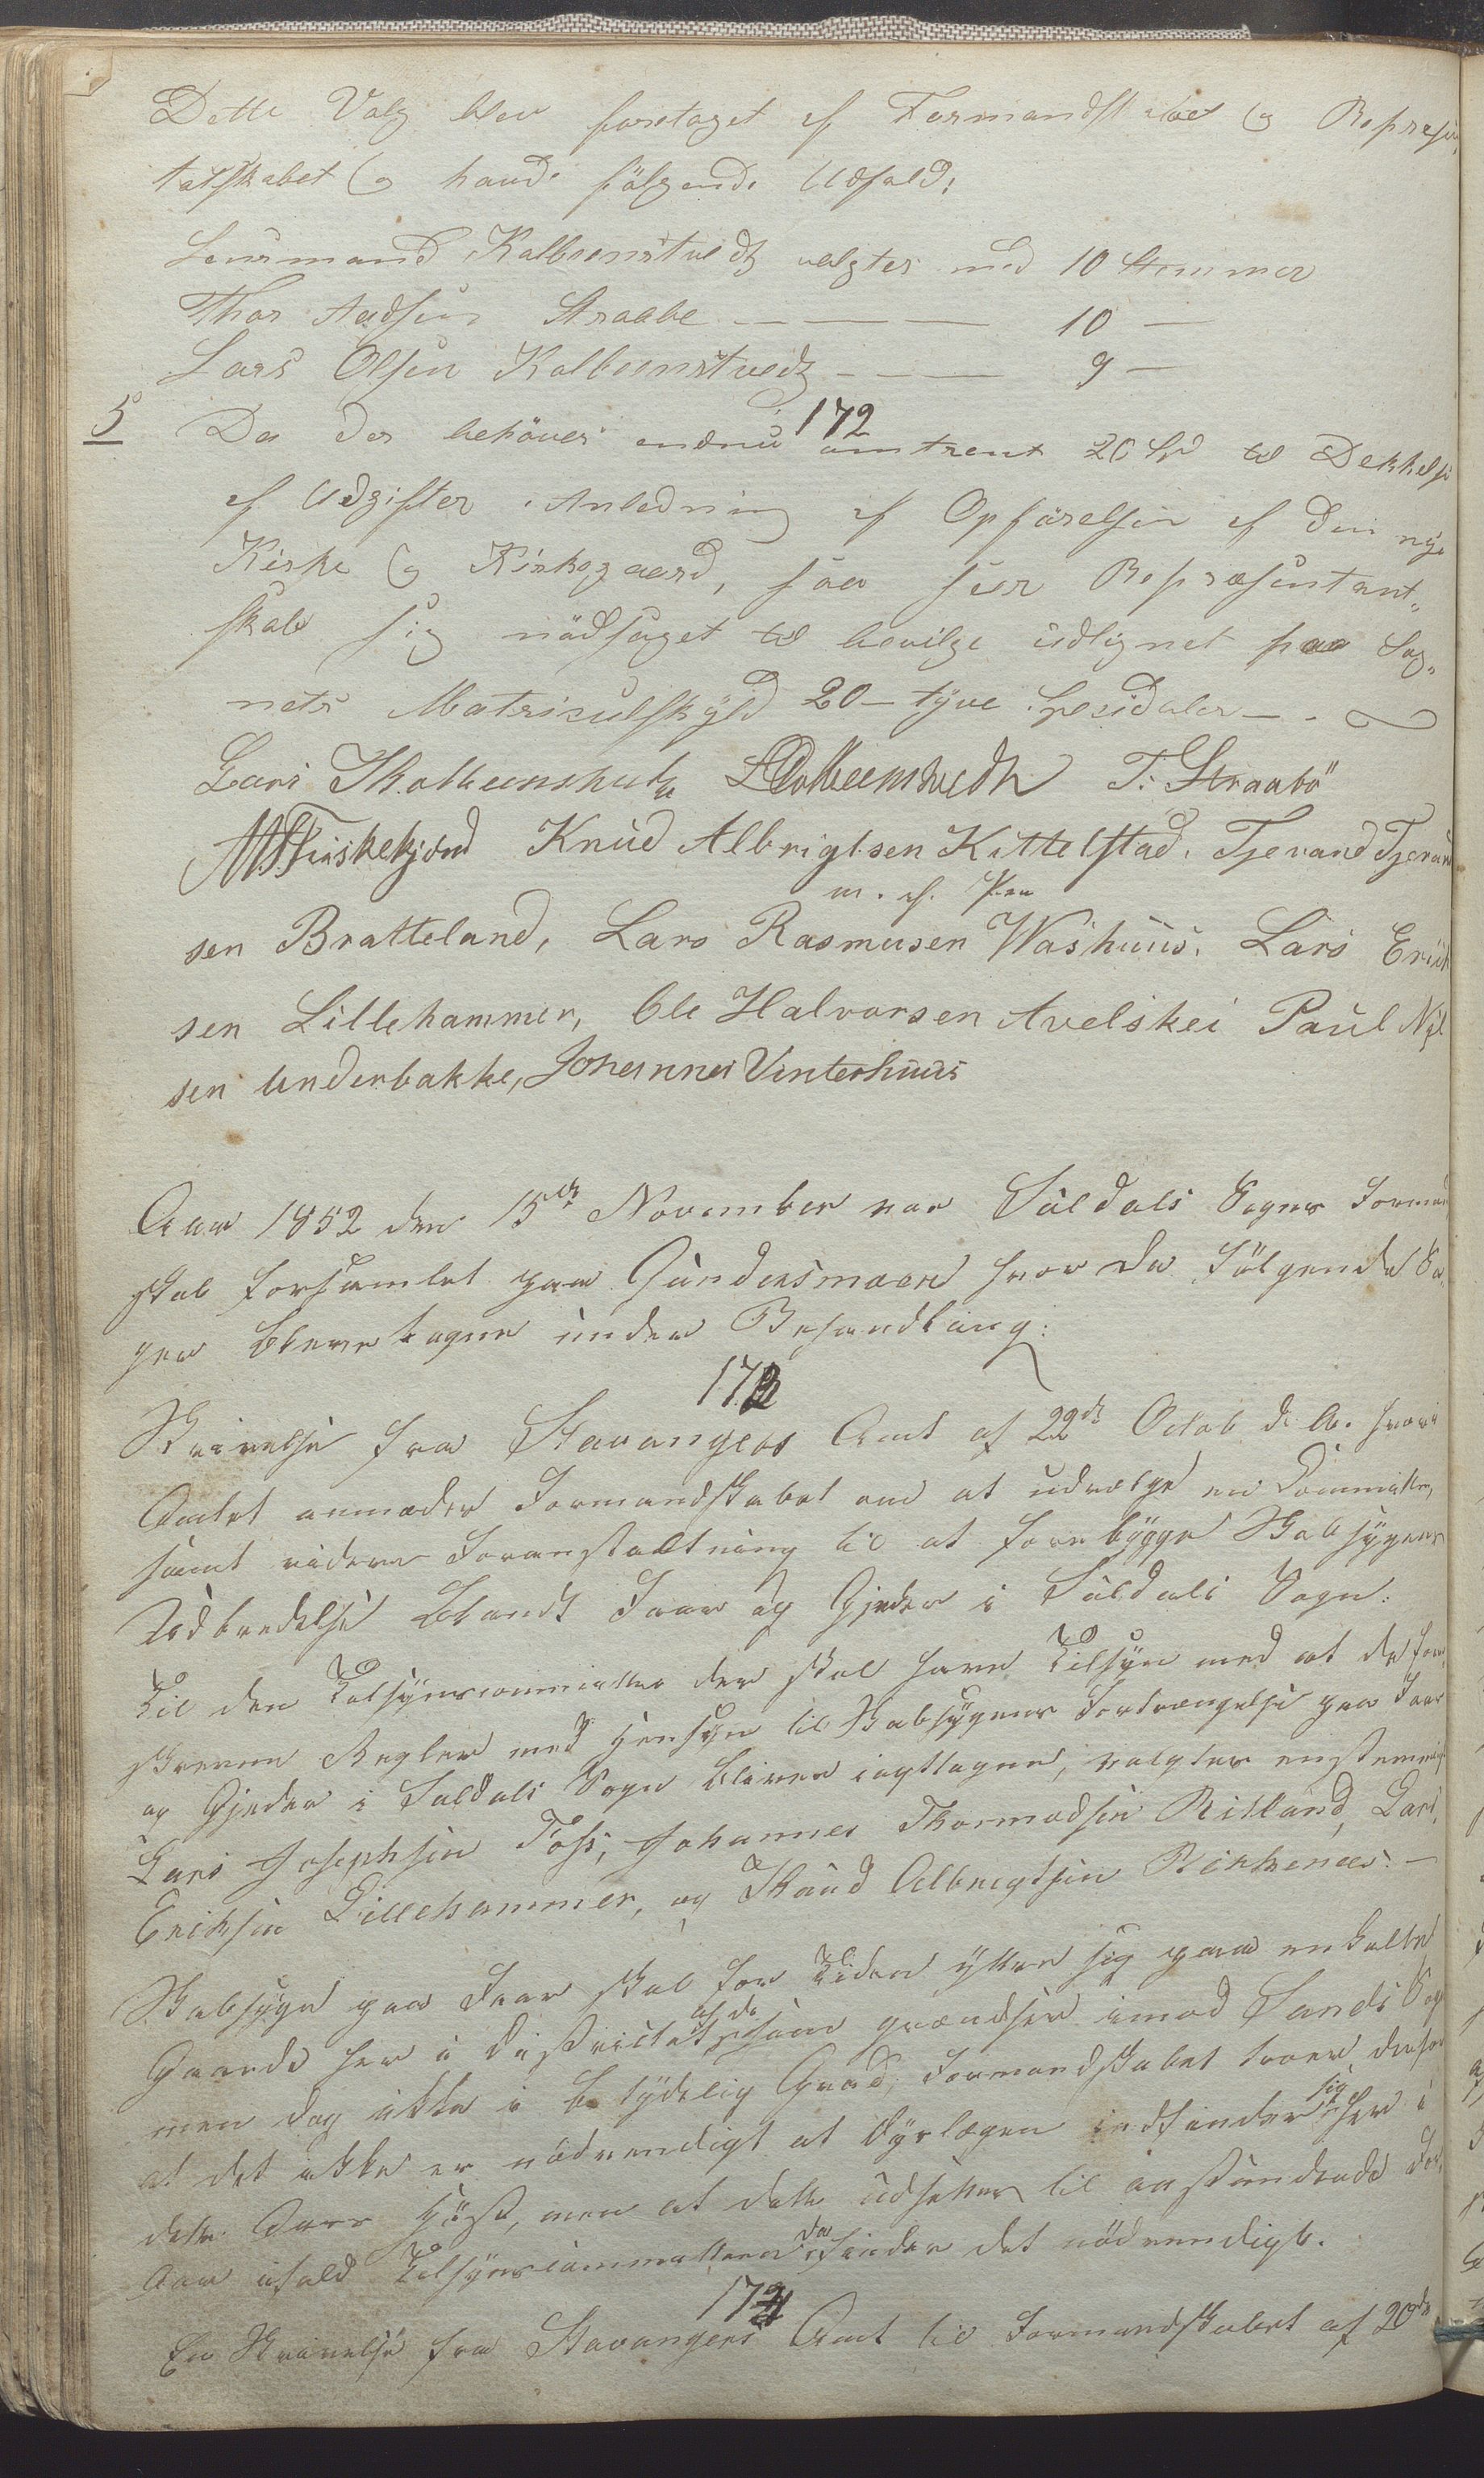 Dette Valg blev foretaget af Formandskabet og Repræsen„
tatskabet og havde følgende Udfald:
Lensmand Kolbeenstvedt valgtes med 10 Stemmer
Thor Aadsen Straabe — — — 10 —
Lars Olsen Kolbeenstvedt — — — 9 —
5 Da der behöves endnu omtrent 20 Spd til Dekkelse
172
af Udgifter i Anledning af Opförelsen af den nye
Kirke og Kirkegaard, saa seer Repræsentant„
skab sig nödsaget til bevilge udlignet paa Sog„
nets Matriculskyld 20 – tyve Speidaler —
Lars Kolbeenstvedt T. Straabö
Knud Albrigtsen Kittelstad. Tjerand Tjerand
m. f. Pen
sen Bratteland, Lars Rasmusen Washuus. Lars Erick
sen Lillehammer, Ole Halvorsen Avelskei Paul Nil
sen Underbakke, Johannes Vinterhuus
Aar 1852 den 15de November var Suldals Sogns Formand
skab forsamlet paa Gundersmoen hvor da følgende Sa„
ger bleve tagne under Behandling:
173
Skrivelse fra Stavangers Amt af 22de Octob d. A. hvori
Amtet anmoder Formandskabet om at udvælge en Committee,
samt videre Foranstaltning til at forebygge Skabsygens
Udbredelse blandt Faar og Gjeder i Suldals Sogn.
Til den Tilsynscommittee der skal have Tilsyn med at de fore„
skrevne Regler med Hensyn til Skabsygens Fortrængelse paa Faar
og Gjeder i Suldals Sogn bliver iagttagne, valgtes enstemmig
Lars Josephsen Foss, Johannes Thormodsen Ritland, Lars
Eriksen Lillehammer, og Knud Albregtsen Birkenæs. —
Skabsyge paa Faar skal for Tiden yttre sig paa enkelte
Gaarde her i Districtet af de som grændser imod Sands Sogn
men dog ikke i betydelig Grad; Formandskabet troer derfor
at det ikke er nödvendigt at Dyrlægen indfinder sig her i
dette Aars Höst, men at dette udsættes til anstundende For„
Aar ifald Tilsynscommitteen da finder det nödvendigt.
174
En Skrivelse fra Stavangers Amt til Formandskabet af 20de